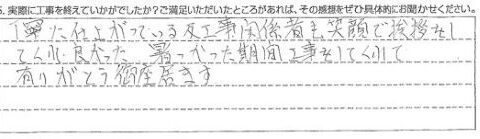 5. 実際に工事を終えていかがでしたか？ご満足いただいたところがあれば、その感想をぜひ具体的にお聞かせください。
た仕上がっている及工事関係者も、笑顔で挨拶をし
てくれ良かった 暑つかった期間工事をしてくれて
有りがとう御座居ます